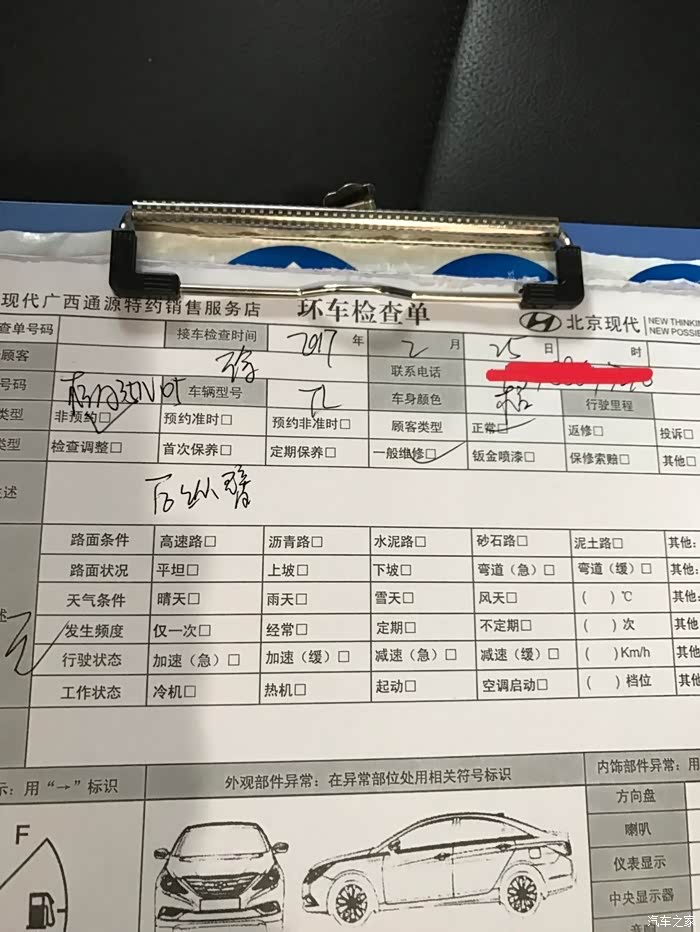 现代广西通源特约销售服务店 环车检查单 北京现代 NEW THINKIN NEW POSSIE
查单号码 接车检查时间 2017 年 2 月 25 日 时
顾客 联系电话
号码 车辆型号 车身颜色 行驶里程
类型 非预约□ 预约准时□ 预约非准时□ 顾客类型 正常□ 返修□ 投诉□
类型 检查调整□ 首次保养□ 定期保养□ 一般维修□ 钣金喷漆□ 保修索赔□ 其他□
述 后纵臂
路面条件 高速路□ 沥青路□ 水泥路□ 砂石路□ 泥土路□ 其他:
路面状况 平坦□ 上坡□ 下坡□ 弯道（急）□ 弯道（缓）□ 其他:
天气条件 晴天□ 雨天□ 雪天□ 风天□ （ ）℃ 其他:
述 发生频度 仅一次□ 经常□ 定期□ 不定期□ （ ）次 其他
行驶状态 加速（急）□ 加速（缓）□ 减速（急）□ 减速（缓）□ （ ）Km/h 其他
工作状态 冷机□ 热机□ 起动□ 空调启动□ （ ）档位 其他
示: 用“→”标识 外观部件异常: 在异常部位处用相关符号标识 内饰部件异常: 用
方向盘
F
喇叭
仪表显示
中央显示器
汽车之家